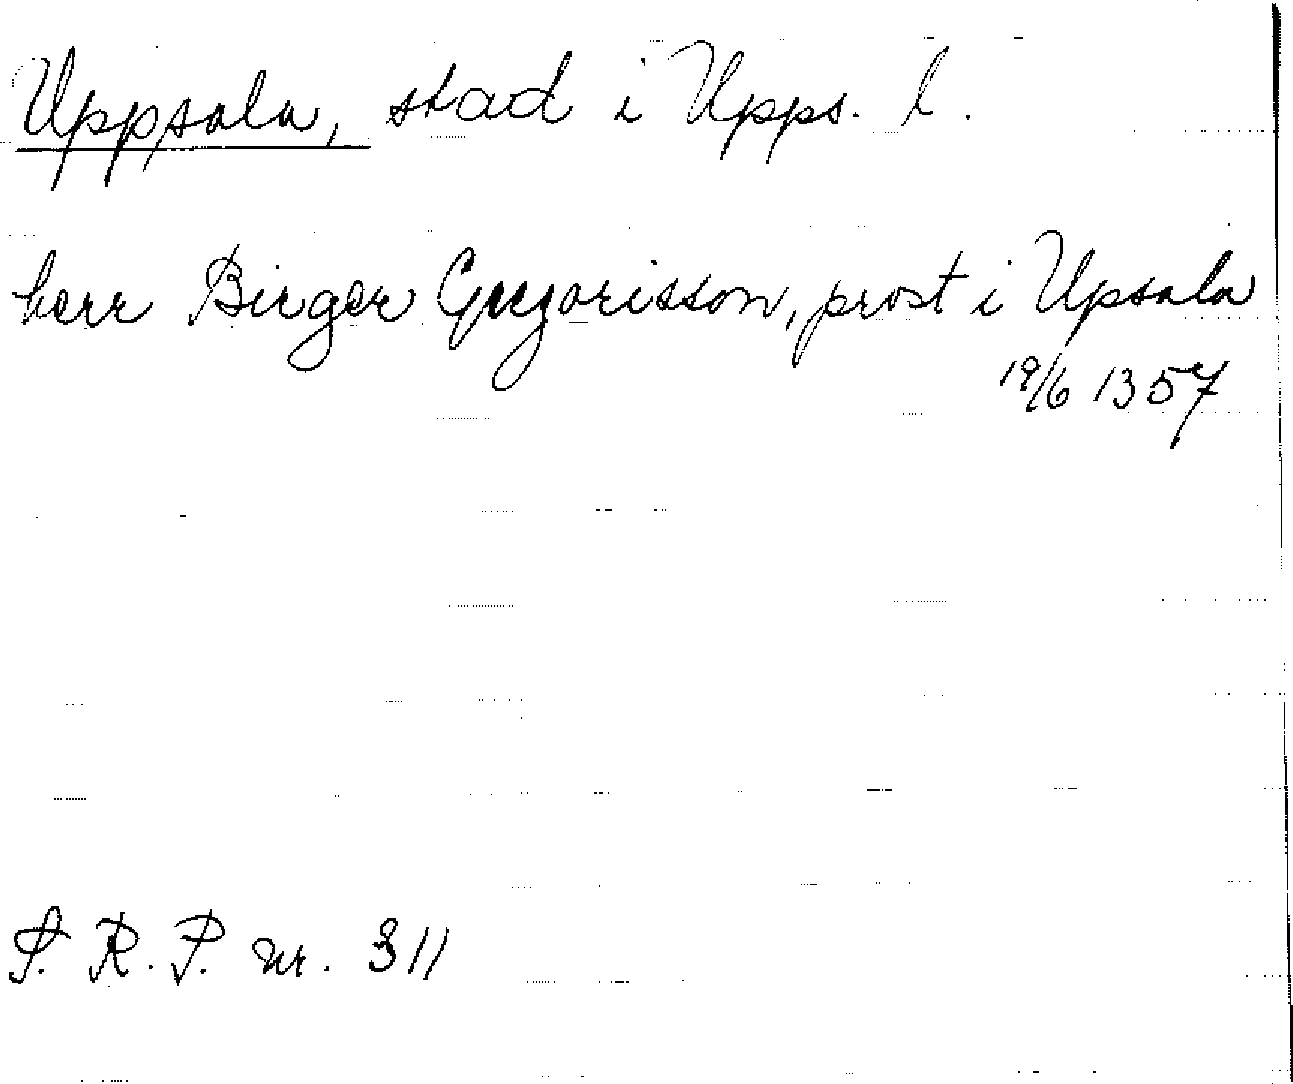 Uppsala, stad i Upps. l.
herr Birger Gregorisson, prost i Upsala
19/6 1357
S. R. P. nr. 311